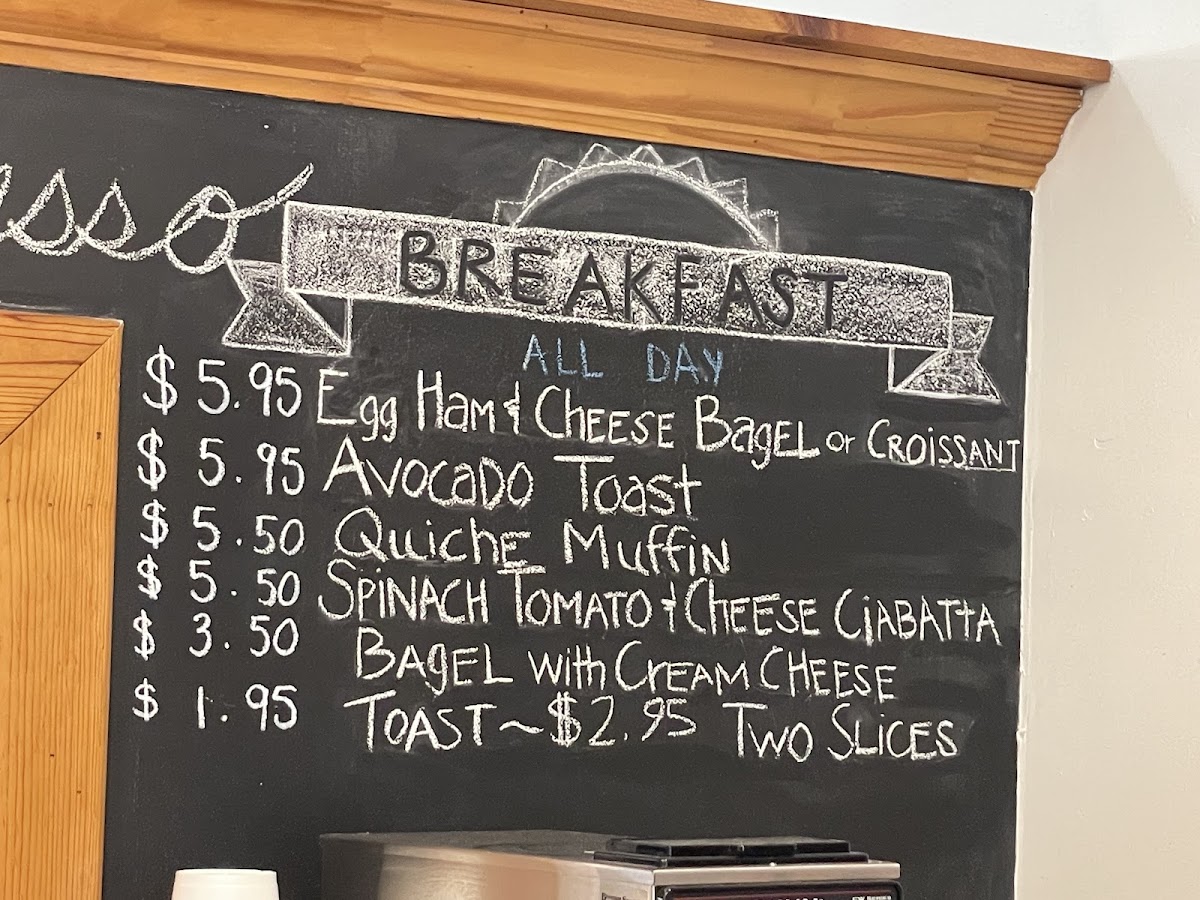 BREAKFAST
ALL DAY
$ 5.95 Egg Ham & Cheese Bagel or Croissant
$ 5.95 Avocado Toast
$ 5.50 Quiche Muffin
$ 5.50 Spinach Tomato & Cheese Ciabatta
$ 3.50 Bagel with Cream Cheese
$ 1.95 Toast ~ $2.95 Two Slices